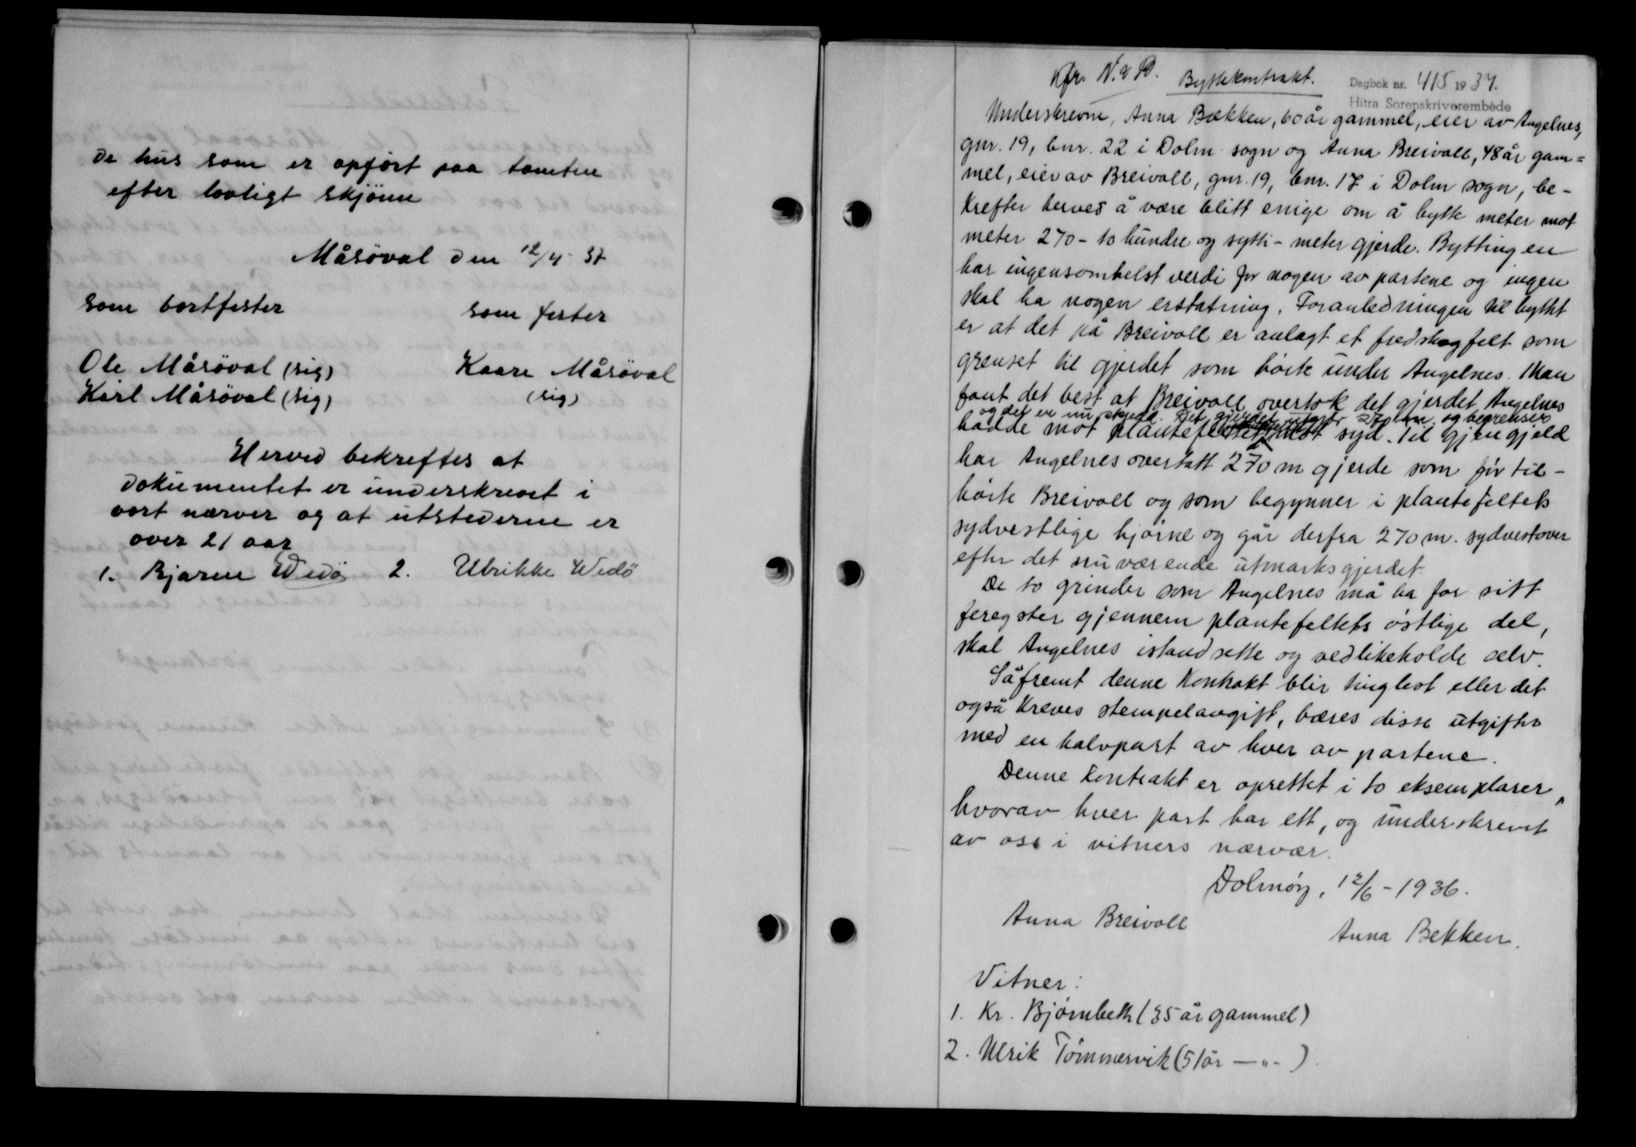 de hus som er opført paa tomten
efter lovligt skjønn
Måsøval den 12/4 37
som bortfester
som fester
Ole Måsøval (sig)
Kaare Måsøval
Karl Måsøval (sig)
(sig)
Herved bekreftes at
dokumentet er underskrevet i
vort nærver og at utstederne er
over 21 aar
1. Bjarne Wedø 2. Ulrikke Wedø
Kfr. N. & R. Byttekontrakt. Dagbok nr. 415 1937.
Hitra Sorenskriverembede
Underskrevne, Anna Bækken, 60 år gammel, eier av Angelnes,
gnr. 19, bnr. 22 i Dolm sogn og Anna Breivoll, 48 år gam=
mel, eier av Breivoll, gnr. 19, bnr. 17 i Dolm sogn, be-
krefter herved å være blitt enige om å bytte meter mot
meter 270 - to hundre og sytti - meter gjerde. Byttingen
har ingensomhelst verdi for nogen av partene og ingen
skal ha nogen erstatning. Foranledningen til byttet
er at det på Breivoll er anlagt et fredskogfelt som
grenset til gjerdet som hørte under Angelnes. Man
fant det best at Breivoll overtok det gjerdet Angelnes
og det er nu skjedd. Det gjerdet 270 m. og begrenses
hadde mot plantefeltet mot syd. Til gjengjeld
har Angelnes overtatt 270 m gjerde som før til-
hørte Breivoll og som begynner i plantefeltets
sydvestlige hjørne og går derfra 270 m. sydvestover
efter det nuværende utmarksgjerdet.
De to grinder som Angelnes må ha for sitt
feregster gjennem plantefeltets østlige del,
skal Angelnes istandsette og vedlikeholde selv.
Såfremt denne kontrakt blir tinglest eller det
også kreves stempelavgift, bæres disse utgifter
med en halvpart av hver av partene.
Denne kontrakt er oprettet i to eksemplarer,
hvorav hver part har ett, og underskrevet
av oss i vitners nærvær.
Dolmøy, 12/6 - 1936.
Anna Breivoll
Anna Bekken.
Vitner:
1. Kr. Bjørnbeth (35 år gammel)
2. Ulrik Tømmervik (51 år —"—)